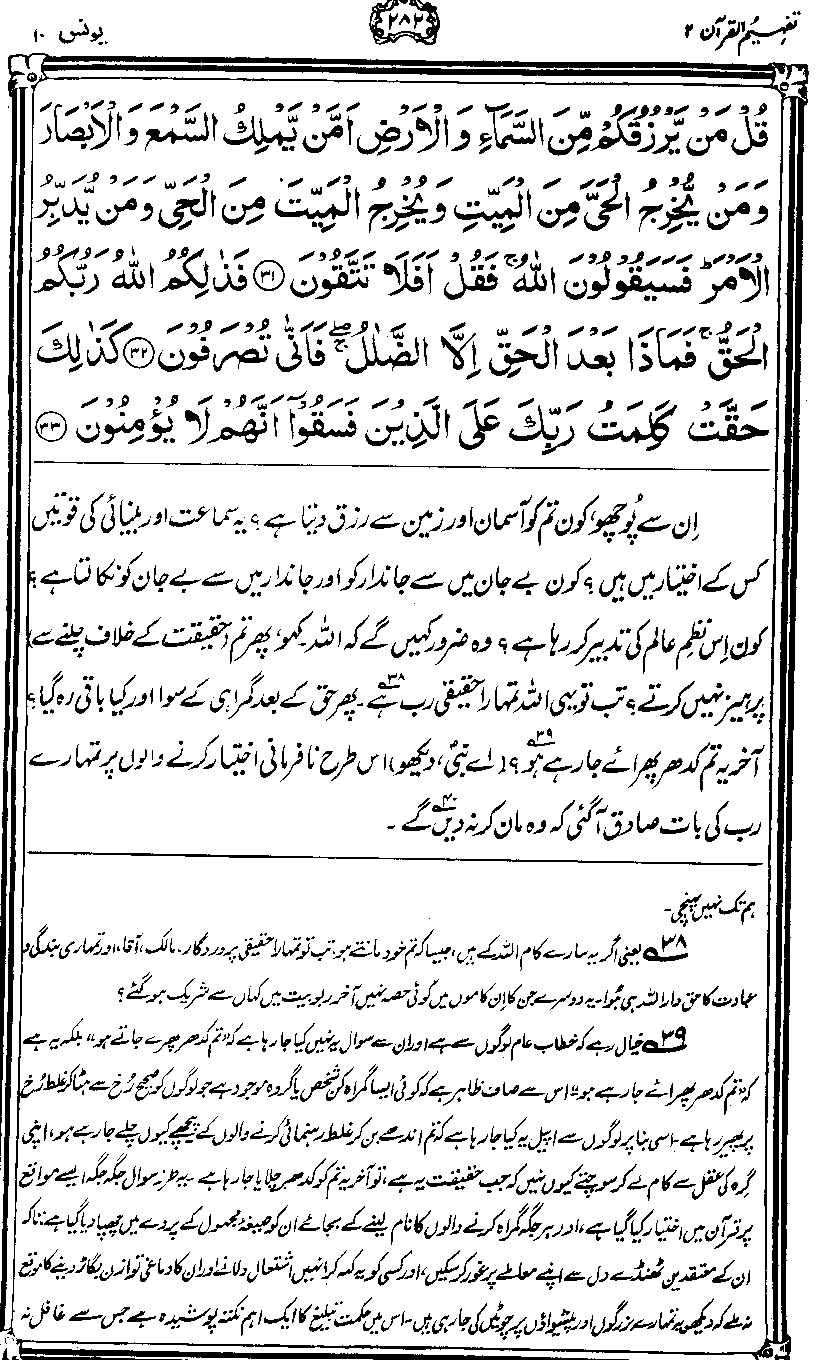 تفہیم القرآن ۲
۲۸۲
یونس ۱۰
قُلْ مَنْ يَّرْزُقُكُمْ مِّنَ السَّمَآءِ وَالْاَرْضِ اَمَّنْ يَّمْلِكُ السَّمْعَ وَالْاَبْصَارَ
وَمَنْ يُّخْرِجُ الْحَيَّ مِنَ الْمَيِّتِ وَيُخْرِجُ الْمَيِّتَ مِنَ الْحَيِّ وَمَنْ يُّدَبِّرُ
الْاَمْرَ ؕ فَسَيَقُوْلُوْنَ اللّٰهُ ۚ فَقُلْ اَفَلَا تَتَّقُوْنَ ﴿۳۱﴾ فَذٰلِكُمُ اللّٰهُ رَبُّكُمُ
الْحَقُّ ۚ فَمَاذَا بَعْدَ الْحَقِّ اِلَّا الضَّلٰلُ ۖۚ فَاَنّٰى تُصْرَفُوْنَ ﴿۳۲﴾ كَذٰلِكَ
حَقَّتْ كَلِمَتُ رَبِّكَ عَلَى الَّذِيْنَ فَسَقُوْٓا اَنَّهُمْ لَا يُؤْمِنُوْنَ ﴿۳۳﴾
اِن سے پُوچھو، کون تم کو آسمان اور زمین سے رزق دیتا ہے؟ یہ سماعت اور بینائی کی قوتیں
کس کے اختیار میں ہیں؟ کون بے جان میں سے جاندار کو اور جاندار میں سے بے جان کو نکالتا ہے؟
کون اِس نظمِ عالم کی تدبیر کر رہا ہے؟ وہ ضرور کہیں گے کہ اللہ۔ کہو، پھر تم (حقیقت کے خلاف چلنے سے)
پرہیز نہیں کرتے؟ تب تو یہی اللہ تمہارا حقیقی رب ہے۳۸۔ پھر حق کے بعد گمراہی کے سوا اور کیا باقی رہ گیا؟
آخر یہ تم کدھر پھرائے جا رہے ہو۳۹؟ (اے نبیؐ، دیکھو) اس طرح نافرمانی اختیار کرنے والوں پر تمہارے
رب کی بات صادق آگئی کہ وہ مان کر نہ دیں۴۰ گے۔
ہم تک نہیں پہنچی۔
۳۸ یعنی اگر یہ سارے کام اللہ کے ہیں، جیسا کہ تم خود مانتے ہو، تب تو تمہارا حقیقی پروردگار، مالک، آقا، اور تمہاری بندگی و
عبادت کا حق دار اللہ ہی ہُوا۔ یہ دوسرے جن کا اِن کاموں میں کوئی حصہ نہیں آخر ربوبیت میں کہاں سے شریک ہو گئے؟
۳۹ خیال رہے کہ خطاب عام لوگوں سے ہے اور ان سے سوال یہ نہیں کیا جا رہا ہے کہ ”تم کدھر پھرے جاتے ہو“ بلکہ یہ ہے
کہ ”تم کدھر پھرائے جا رہے ہو“۔ اس سے صاف ظاہر ہے کہ کوئی ایسا گمراہ کن شخص یا گروہ موجود ہے جو لوگوں کو صحیح رُخ سے ہٹا کر غلط رُخ
پر پھیر رہا ہے۔ اسی بنا پر لوگوں سے اپیل یہ کیا جا رہا ہے کہ تم اندھے بن کر غلط رہنمائی کرنے والوں کے پیچھے کیوں چلے جا رہے ہو، اپنی
گرہ کی عقل سے کام لے کر سوچتے کیوں نہیں کہ جب حقیقت یہ ہے، تو آخر یہ تم کو کدھر چلایا جا رہا ہے۔ یہ طرزِ سوال جگہ جگہ ایسے مواقع
پر قرآن میں اختیار کیا گیا ہے، اور ہر جگہ گمراہ کرنے والوں کا نام لینے کے بجائے ان کو صیغۂ مجہول کے پردے میں چھپا دیا گیا ہے، تاکہ
ان کے معتقدین ٹھنڈے دل سے اپنے معاملے پر غور کر سکیں، اور کسی کو یہ کہہ کر انہیں اشتعال دلانے اور ان کا دماغی توازن بگاڑ دینے کا موقع
نہ ملے کہ دیکھو یہ تمہارے بزرگوں اور پیشواؤں پر چوٹیں کی جا رہی ہیں۔ اس میں حکمتِ تبلیغ کا ایک اہم نکتہ پوشیدہ ہے جس سے غافل نہ